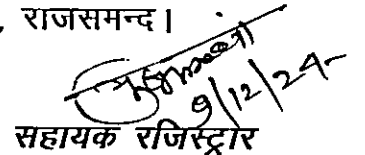 , राजसमन्द।
9/12/24
सहायक रजिस्ट्रार